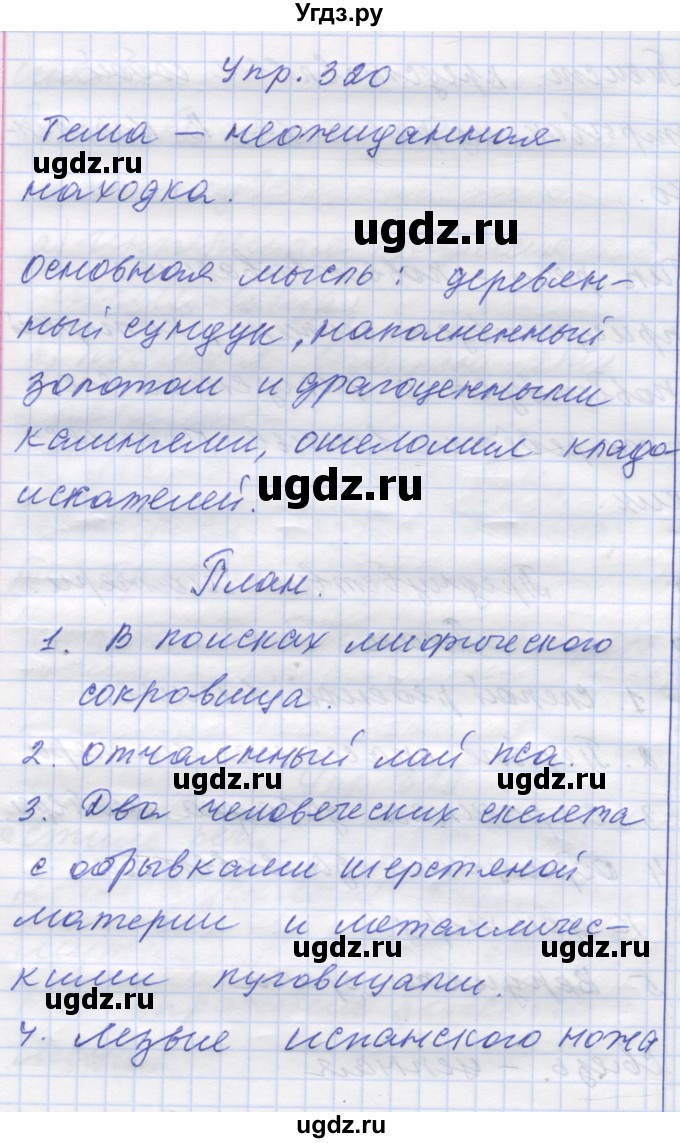 Угдз.ру
Упр. 320
Тема – неожиданная
находка.
Основная мысль: деревян-
ный сундук, наполненный
золотом и драгоценными
камнями, ошеломил кладо-
искателей.
План.
1. В поисках мифического
сокровища.
2. Отчаянный лай пса.
3. Два человеческих скелета
с обрывками шерстяной
материи и металличес-
кими пуговицами.
4. Лезвие испанского ножа
ugdz.ru
ugdz.ru
ugdz.ru
ugdz.ru
ugdz.ru
ugdz.ru
ugdz.ru
ugdz.ru
ugdz.ru